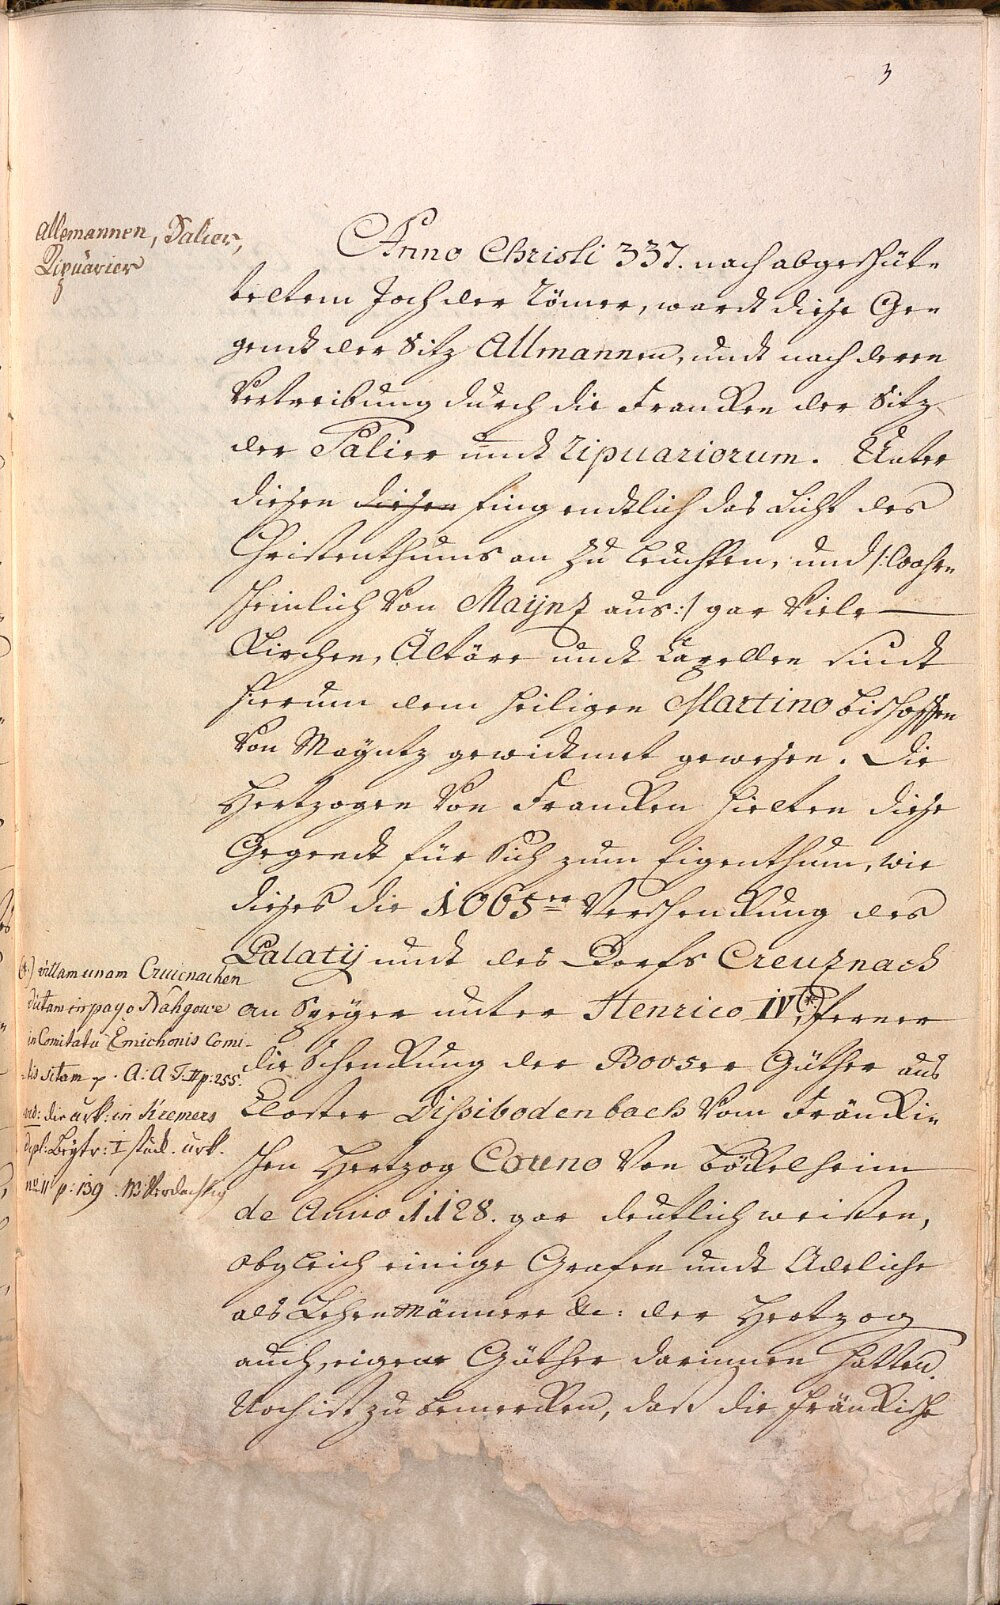 3
Allemannen, Salier,
Ripuarier
Anno Christi 337. nach abgeschüt-
teltem Joch der Römer, wardt diese Ge-
gendt der Sitz Allmannen, undt nach deren
Vertreibung durch die Francken der Sitz
der Salier undt Ripuariorum. Unter
diesen diesen fing endtlich das Licht des
Christenthums an zu leuchten, und /: wahr-
scheinlich von Maynz aus :/ gar viele
Kirchen, Altäre undt Capellen sindt
hierum dem heiligen Martino bischoffen
von Mayntz gewidtmet gewesen. Die
Hertzogen von Francken hielten diese
Gegendt für sich zum Eigenthum, wie
dieses die 1065re Verschenckung des
Palatij undt des Dorfs Creuznach
an Speyer unter Henrico IV, (*) ferner
die Schenckung der Booser Güther ans
Closter Dissibodenbach vom Fräncki-
schen Hertzog Couno von Böckelheim
de Anno 1128. gar deutlich weißen,
obgleich einige Grafen undt Adeliche
als Lehenmänner &c: der Hertzog
auch, eigene Güther darinnen hatten.
Noch ist zu bemercken, daß die fränckische
(*) villam unam Crucinachen
dictam in pago Nahgowe
in Comitatu Emichonis Comi-
tis sitam p. A: A T. II p: 255.
vid: die urk: in Kremers
dipl: Beytr: I stück. urk.
no II p: 139. NB Verdächtig